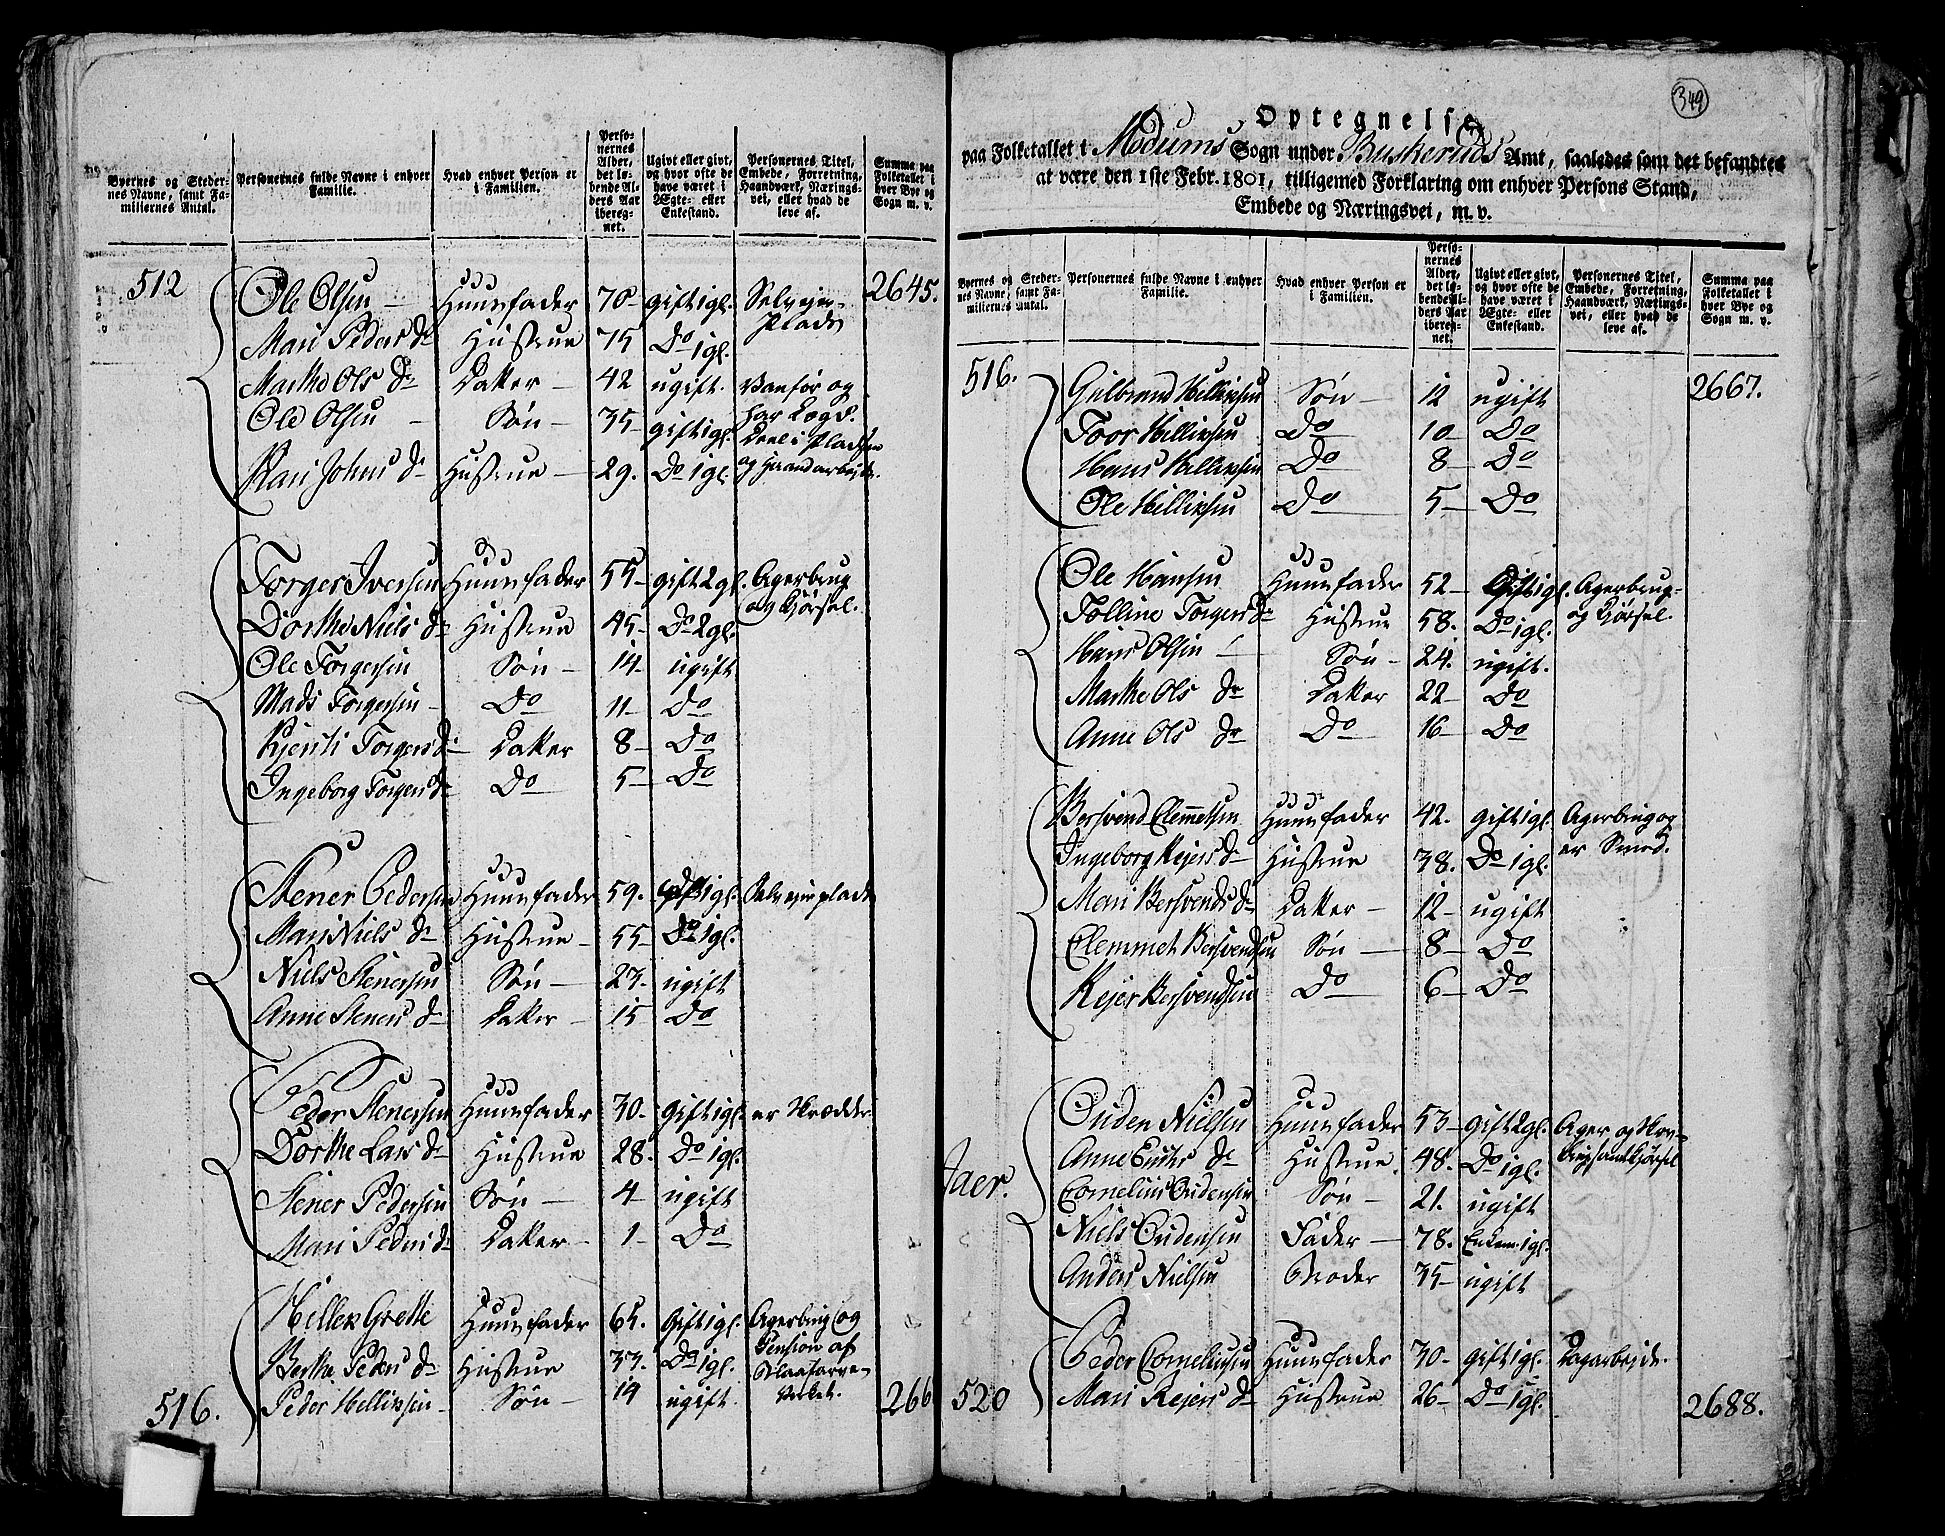 Byernes og Steder-
nes Navne, samt Fa-
miliernes Antal.
Personernes fulde Navne i enhver
Familie.
Hvad enhver Person er
i Familien.
Perso-
nernes
Alder,
det lø-
bende Al-
ders Aar
iberegnet.
Ugivt eller givt,
og hvor ofte de
have været i
Ægte- eller
Enkestand.
Personernes Titel,
Embede, Forretning,
Haandværk, Nærings-
vei, eller hvad de
leve af.
Summa paa
Folketallet i
hver Bye og
Sogn m. v.
512 Ole Olsen - Huusfader 70- gift 1gl. Selvejer- 2645.
Mari Peders Dr Hustrue 75 Do 1gl. Plads
Marthe Ols Dr Datter - 42 ugift. Vanför og
Ole Olsen - Søn - 35- gift 1gl. har Logd. Deel i Pladsen
Kari Johns Dr Hustrue - 29. Do 1gl. og Haandarbejde.
Torger Iversen Huusfader 55- gift 2gl. Agerbrug
Dorthe Niels Dr Hustrue 45- Do 2gl. og Kjörsel.
Ole Torgersen Søn - 14- ugift
Mads Torgersen - Do 11- Do
Kjersti Torgers Dr Datter 8- Do
Ingeborg Torgers Dr Do 5- Do
Stener Pedersen Huusfader 59. gift 1gl. Selvejer plads
Mari Niels Dr Hustrue - 55- Do 1gl.
Niels Stenersen Søn - 23. ugift
Anne Steners Dr Datter - 15 Do
Peder Stenersen Huusfader 30- Gift 1gl. er Skrædder.
Dorthe Lars Dr Hustrue 28. Do 1gl.
Stener Pedersen Søn - 4- ugift
Mari Peders Dr Datter - 1- Do
Hellek Grette Huusfader 65. Gift 1gl. Agerbrug og
Berthe Peders Dr Hustrue 33. Do 1gl. Pension af
516. Peder Helliksen - Søn - 14 ugift. 266
349
Optegnelse
paa Folketallet i Modums Sogn under Buskeruds Amt, saaledes som det befandtes
at være den 1ste Febr. 1801, tilligemed Forklaring om enhver Persons Stand,
Embede og Næringsvei, m. v.
Byernes og Steder-
nes Navne, samt Fa-
miliernes Antal.
Personernes fulde Navne i enhver
Familie.
Hvad enhver Person er
i Familien.
Perso-
nernes
Alder,
det lø-
bende Al-
ders Aar
ibereg-
net.
Ugivt eller givt,
og hvor ofte de
have været i
Ægte- eller
Enkestand.
Personernes Titel,
Embede, Forretning,
Haandværk, Nærings-
vei, eller hvad de
leve af.
Summa paa
Folketallet i
hver Bye og
Sogn m. v.
516. Gulbrand Helliksen Søn - 12 ugift 2667.
Toor Helliksen Do 10- Do
Hans Helliksen Do 8- Do
Ole Helliksen Do 5- Do
Ole Hansen Huusfader 52- Gift 1gl. Agerbrug-
Tolline Torgers Dr Hustrue 58. Do 1gl. og Kjörsel.
Hans Olsen - Søn - 24. ugift.
Marthe Ols Dr Datter 22- Do
Anne Ols Dr Do 16- Do
Bersvend Clemmetsen Huusfader 42. gift 1gl. Agerbrug og
Ingeborg Rejers Dr Hustrue 38. Do 1gl. er Smed.
Mari Bersvends Dr Datter - 12- ugift
Clemmet Bersvendsen Søn - 8- Do
Rejer Bersvendsen Do 6- Do
Ouden Nielsen Huusfader 53- gift 2gl. Ager og Skov-
Anne Dr Hustrue. 48. Do 1gl. brug samt Kjörsel
Jaer. Cornelius Oudensen Søn - 21. ugift
Niels Oudensen Fader - 78. Enkem. 1gl.
Anders Nielsen Broder 35- ugift
Peder Corneliusen Huusfader 30- gift 1gl. Dagarbejde.
520 Mari Rejers Dr Hustrue 26- Do 1gl. 2688.